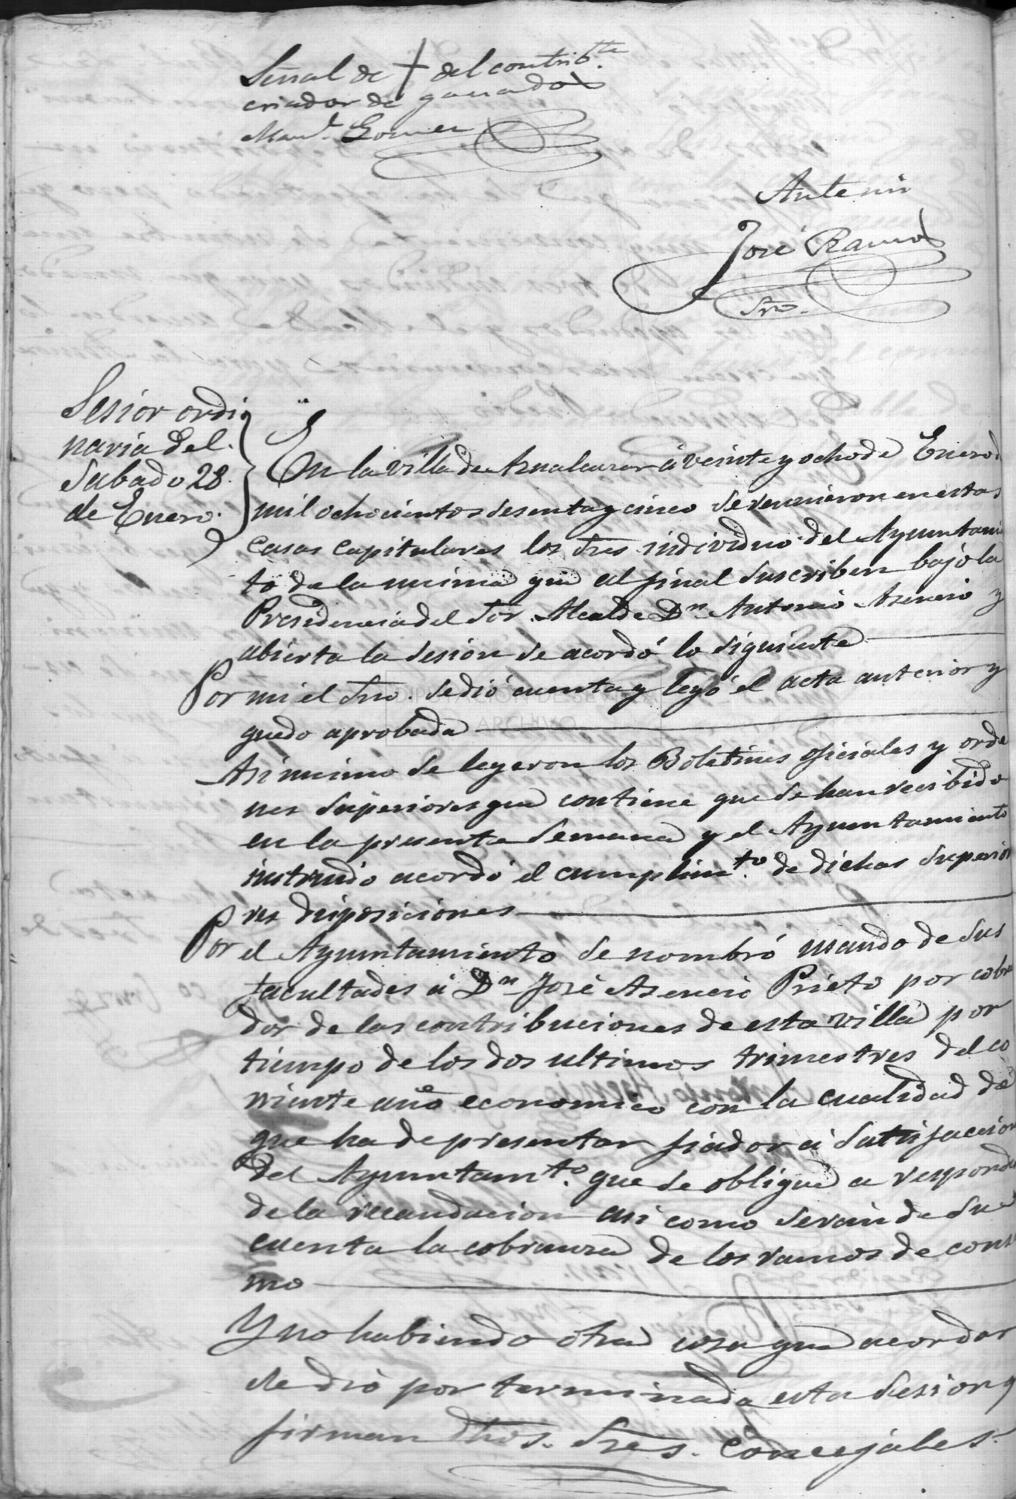 Señal de + del contribte.
criador de ganados
Manl. Gomez
Ante mi
José Ramos
Srio.
Sesion ordi
naria del
Sabado 28
de Enero.
En la villa de Aznalcazar á veinte y ocho de Enero d
mil ochocientos sesenta y cinco se reunieron en estas
casas capitulares los Sres individuo del Ayuntami
to de la misma que al final suscriben bajo la
Presidencia del Sor. Alcalde Dn. Antonio Asencio y
abierta la sesion se acordó lo siguiente
Por mi el Srio. se dió cuenta y leyó el acta anterior y
quedo aprobada
DIPUTACION DE SE
ARCHIVO
Asimismo se leyeron los Boletines oficiales y orde
nes superiores que contiene que se han recibido
en la presente semana y el Ayuntamiento
instruido acordó el cumplimto. de dichas superio
res disposiciones
Por el Ayuntamiento se nombró usando de sus
facultades á Dn José Asencio Prieto por cobra
dor de las contribuciones de esta villa por
tiempo de los dos ultimos trimestres del co
rriente año economico con la cualidad de
que ha de presentar fiador á satisfaccion
del Ayuntamto. que se obligue a responde
de la recaudacion asi como serán de su
cuenta la cobranza de los ramos de consu
mo
Y no habiendo otra cosa que acordar
se dió por terminada esta sesion y
firman dhos. Sres. concejales.